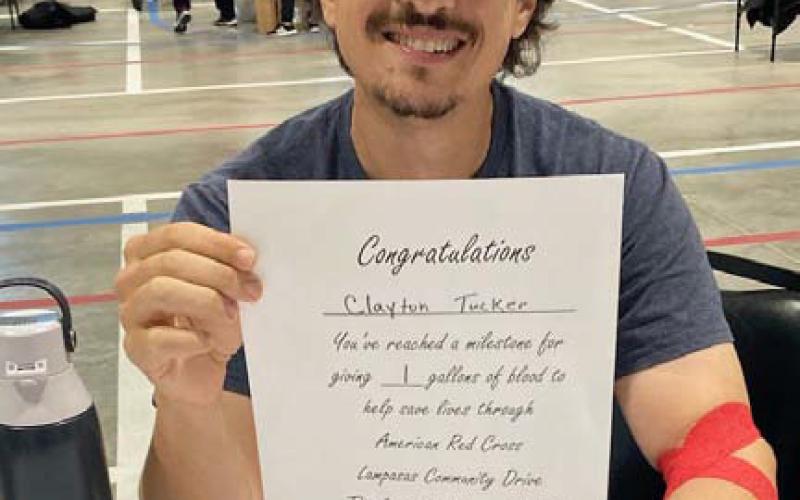 Congratulations
Clayton Tucker
You've reached a milestone for
giving 1 gallons of blood to
help save lives through
American Red Cross
Lampasas Community Drive